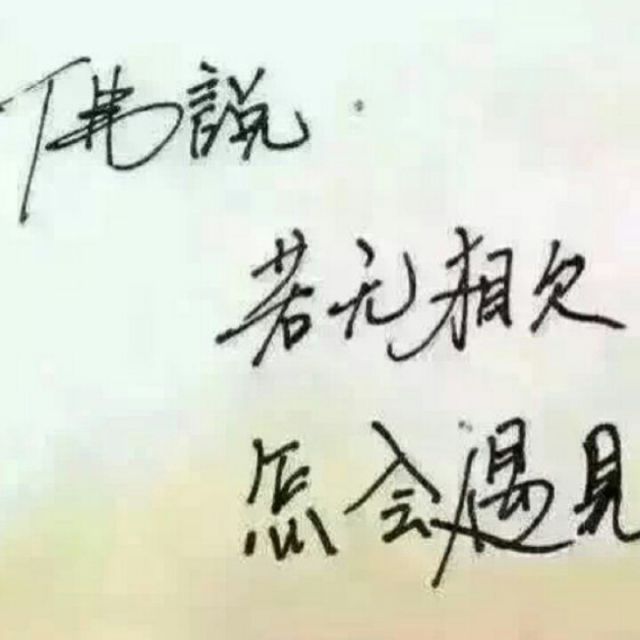 佛說.
若无相欠
怎会遇見